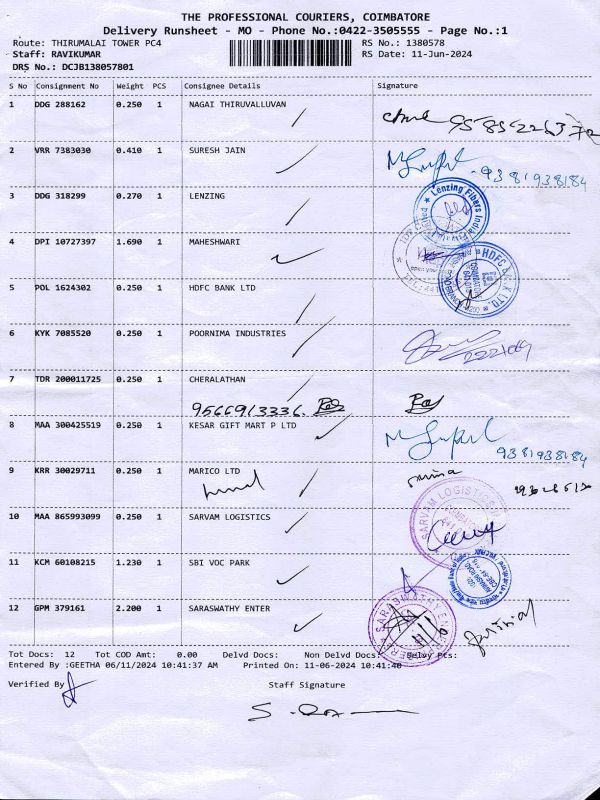 THE PROFESSIONAL COURIERS, COIMBATORE
Delivery Runsheet - MO - Phone No.:0422-3505555 - Page No.:1
Route: THIRUMALAI TOWER PC4 RS No.: 1380578
Staff: RAVIKUMAR RS Date: 11-Jun-2024
DRS No.: DCJB138057801
S No Consignment No Weight PCS Consignee Details Signature
1 DDG 288162 0.250 1 NAGAI THIRUVALLUVAN
2 VRR 7383030 0.410 1 SURESH JAIN
9381938184
3 DDG 318299 0.270 1 LENZING
Lenzing Fibers India
4 DPI 10727397 1.690 1 MAHESHWARI
5 POL 1624302 0.250 1 HDFC BANK LTD
HDFC BANK LTD.
6 KYK 7085520 0.250 1 POORNIMA INDUSTRIES
7 TDR 200011725 0.250 1 CHERALATHAN
9566913336.
8 MAA 300425519 0.250 1 KESAR GIFT MART P LTD
9381938184
9 KRR 30029711 0.250 1 MARICO LTD
10 MAA 865993099 0.250 1 SARVAM LOGISTICS
SARVAM LOGISTICS
11 KCM 60108215 1.230 1 SBI VOC PARK
12 GPM 379161 2.200 1 SARASWATHY ENTER
Tot Docs: 12 Tot COD Amt: 0.00 Delvd Docs: Non Delvd Docs:
Entered By :GEETHA 06/11/2024 10:41:37 AM Printed On: 11-06-2024 10:41:40
Verified By Staff Signature